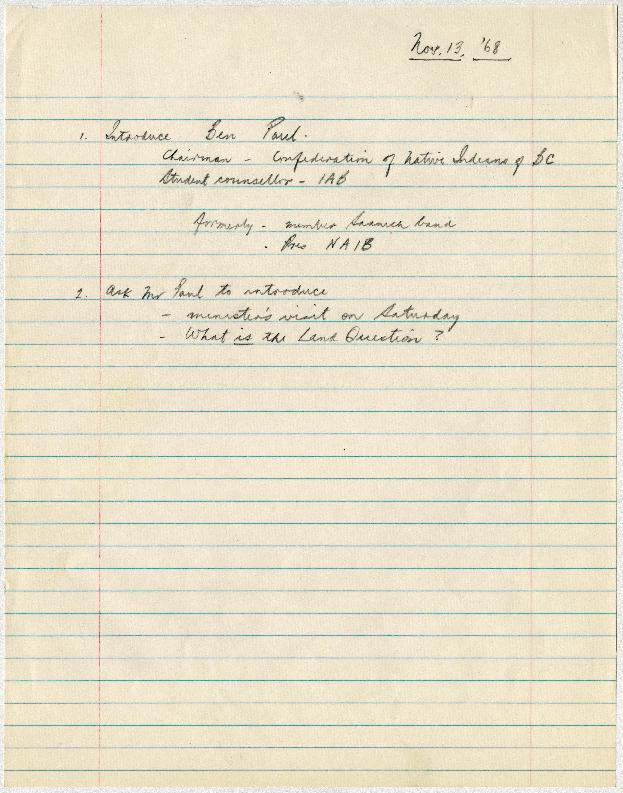 Nov. 13, '68
1. Introduce Ben Paul.
Chairman - Confederation of Native Indians of BC
Student counsellor - IAB
formerly - member Saanich band
- Pres NAIB
2. Ask Mr Paul to introduce
- minister's visit on Saturday
- What is the Land Question ?